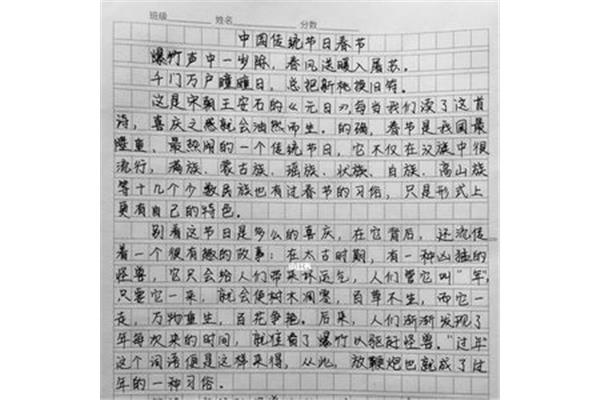 班级 姓名 分数
中国传统节日春节
爆竹声中一岁除，春风送暖入屠苏。
千门万户曈曈日，总把新桃换旧符。
这是宋朝王安石的《元日》，每当我们读了这首
诗，喜庆之感就会油然而生。的确，春节是我国最
隆重、最热闹的一个传统节日，它不仅在汉族中很
流行，满族、蒙古族、瑶族、状族、白族、高山族
等十几个少数民族也有过春节的习俗，只是形式上
更有自己的特色。
别看这节日是多么的喜庆，在它背后，还流传
着一个很有趣的故事：在太古时期，有一种凶猛的
怪兽，它只会给人们带来坏运气，人们管它叫“年”
只要它一来，就会使树木凋零，百草不生，而它一
走，万物重生，百花争艳。后来，人们渐渐发现了
年每次来的时间，就往着了爆竹以驱赶怪兽。“过年”
这个词语便是这样来得，从此，放鞭炮也就成了过
年的一种习俗。